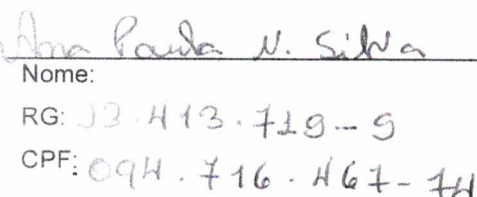 Ana Paula N. Silva
Nome:
RG: 13.413.719-9
CPF: 094.716.467-74